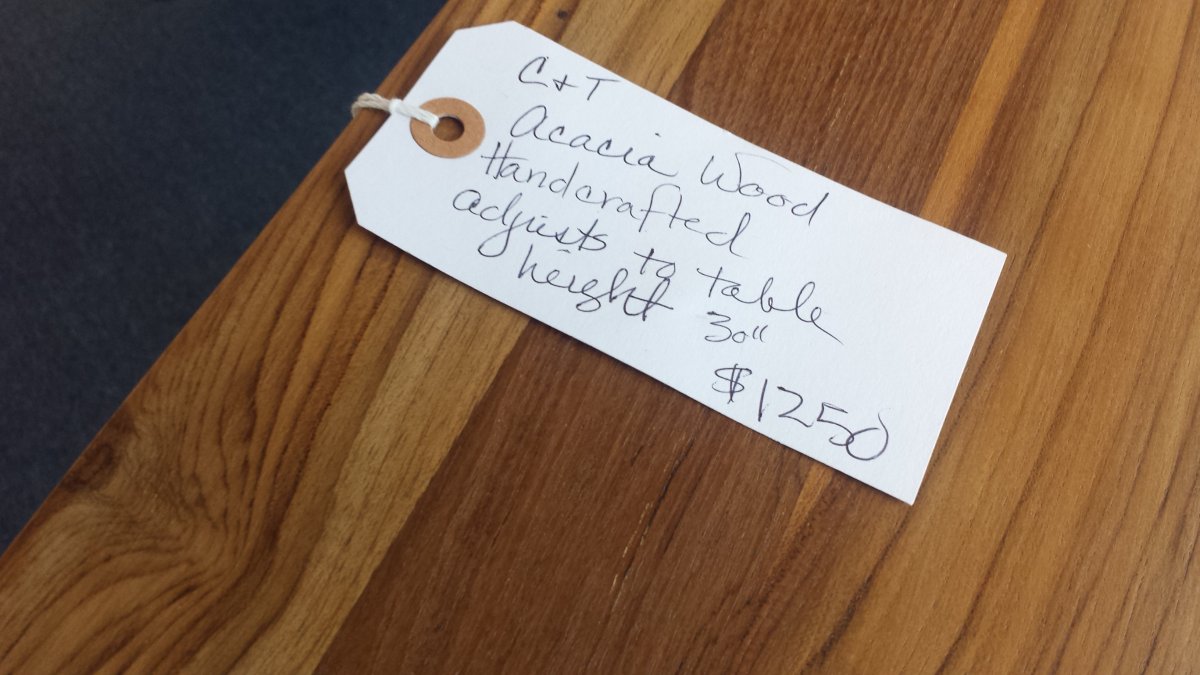 C+T
Acacia Wood
Handcrafted
adjusts to table
height 30"
$1250